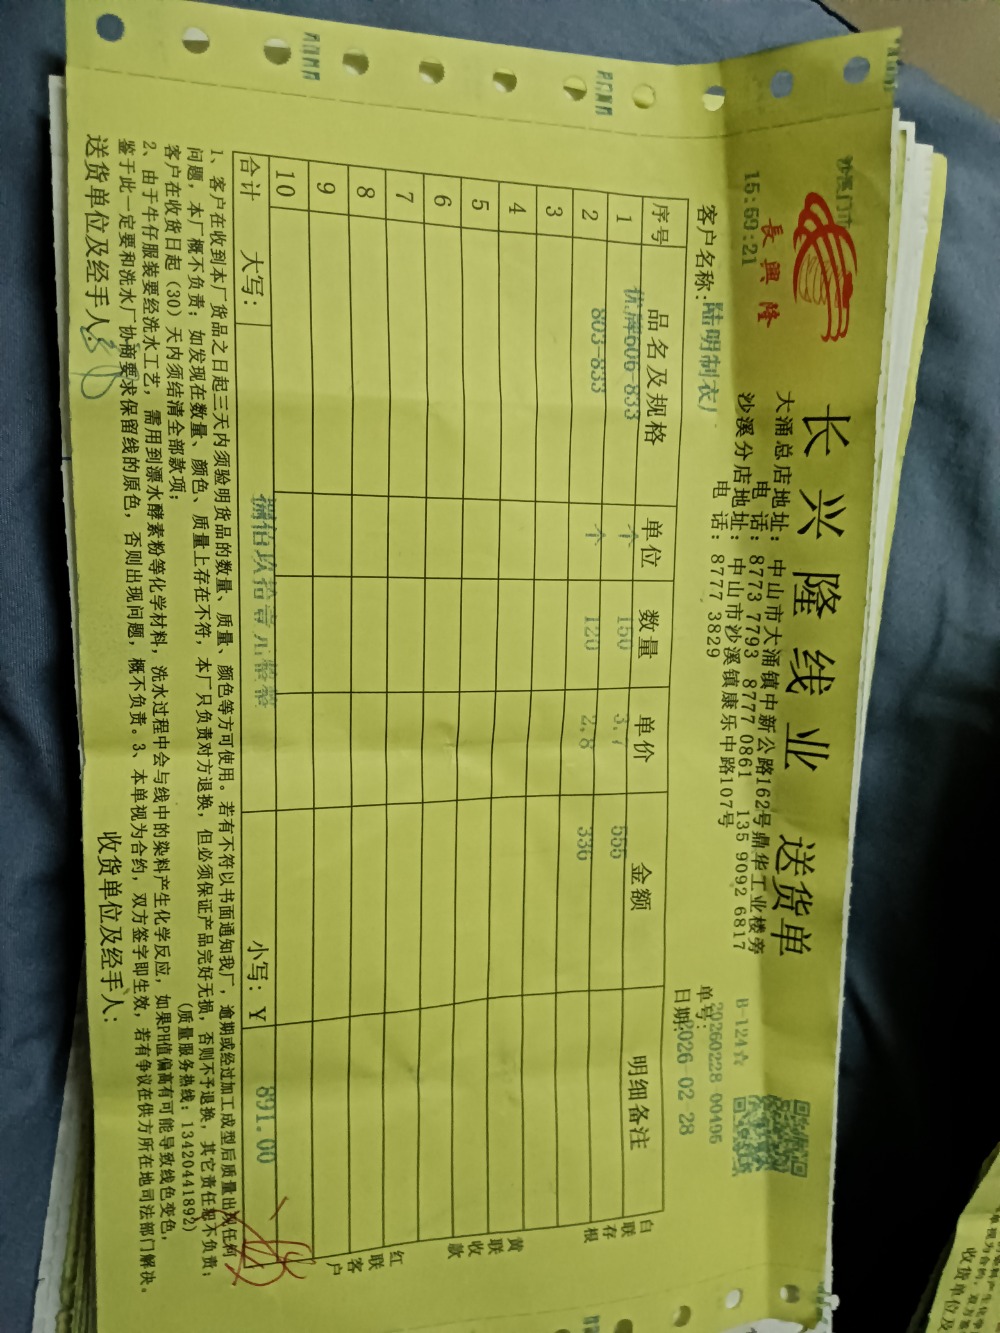 沙溪门市
15:59:21
長興隆
长兴隆线业 送货单
大涌总店地址：中山市大涌镇中新公路162号鼎华工业楼旁
电 话：8773 7793 8777 0861 135 9092 6817
沙溪分店地址：中山市沙溪镇康乐中路107号
电 话：8777 3829
B-124☆
单号：20260228 00495
日期：2026-02 28
客户名称：陆明制衣厂
序号 品名及规格 单位 数量 单价 金额 明细备注
1 优牌606-833 个 150 3.7 555
2 803-833 个 120 2.8 336
3
4
5
6
7
8
9
10
合计 大写：捌佰玖拾壹元整整 小写：Y 891.00
白联存根
黄联收款
红联客户
1、客户在收到本厂货品之日起三天内须验明货品的数量、质量、颜色等方可使用。若有不符以书面通知我厂，逾期或经过加工成型后质量出现任何
问题，本厂概不负责；如发现在数量、颜色、质量上存在不符，本厂只负责对方退换，但必须保证产品完好无损，否则不予退换，其它责任恕不负责；
客户在收货日起（30）天内须结清全部款项；
（质量服务热线：13420441892）
2、由于牛仔服装要经洗水工艺，需用到漂水酵素粉等化学材料，洗水过程中会与线中的染料产生化学反应，如果PH值偏高有可能导致线色变色，
鉴于此一定要和洗水厂协商要求保留线的原色，否则出现问题，概不负责。3、本单视为合约，双方签字即生效，若有争议在供方所在地司法部门解决。
送货单位及经手人：
收货单位及经手人：